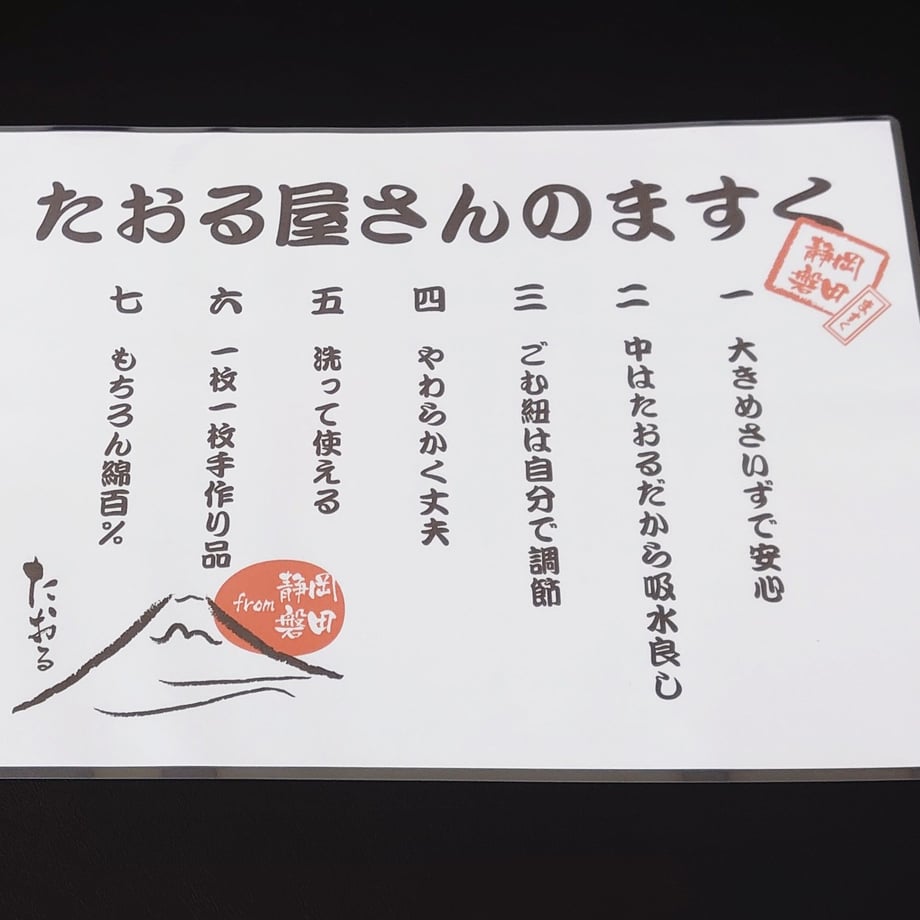 たおる屋さんのますく
静岡
磐田
ますく
一 大きめさいずで安心
二 中はたおるだから吸水良し
三 ごむ紐は自分で調節
四 やわらかく丈夫
五 洗って使える
六 一枚一枚手作り品
七 もちろん綿百%
from
静岡
磐田
たおる